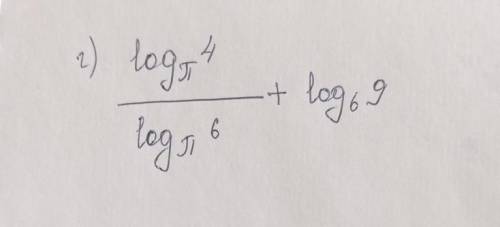 г) log_π 4 / log_π 6 + log_6 9